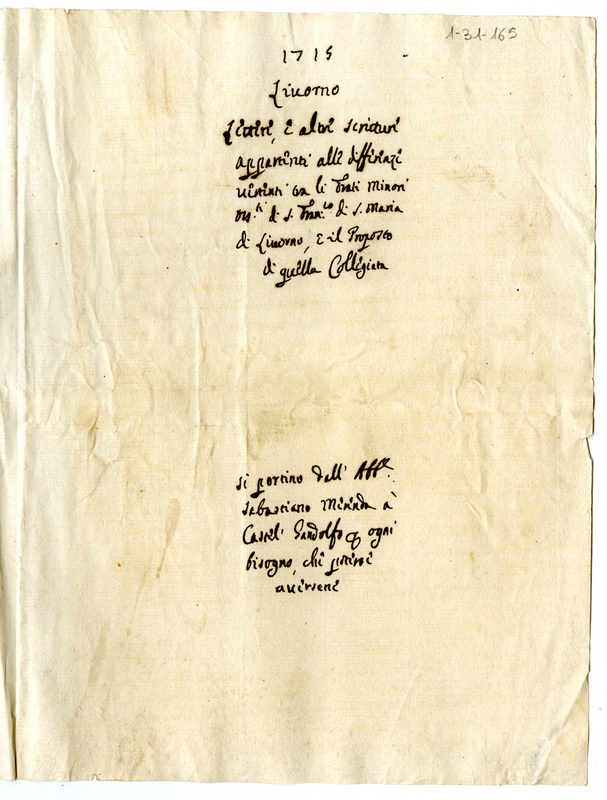 1-31-165
1715
Livorno
Lettere, e altre scritture
appartenti alle differenze
vertenti tra li Frati Minori
Oss.ti di S. Fran.co di S. Maria
di Livorno, e il Proposto
di quella Collegiata
si portino dall' Abb.e
Sebastiano Merenda à
Castel Gandolfo p ogni
bisogno, che potesse
avervene